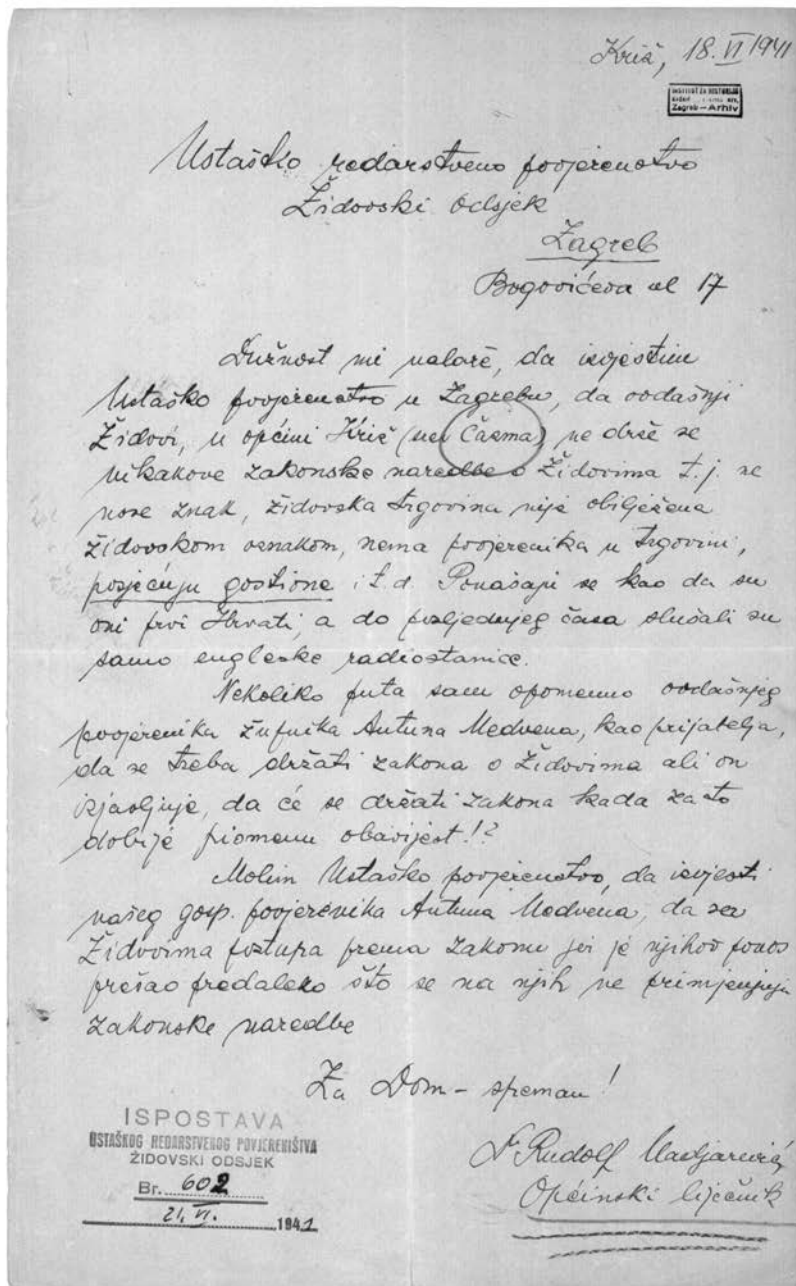 Križ, 18. VI 1941
Zagreb – Arhiv
Ustaško redarstveno povjerenstvo
Židovski odsjek
Zagreb
Bogovićeva ul 17
Dužnost mi nalaže, da izvjestim
Ustaško povjerenstvo u Zagrebu, da ovdašnji
Židovi, u općini Križ (kod Čazma) ne drže se
nikakove zakonske naredbe o Židovima t.j. ne
nose znak, židovska trgovina nije obilježena
židovskom oznakom, nema povjerenika u trgovini,
posjećuju gostione i t.d. Ponašaju se kao da su
oni prvi Hrvati, a do posljednjeg časa slušali su
samo engleske radiostanice.
Nekoliko puta sam opomenuo ovdašnjeg
povjerenika župnika Antuna Medvena, kao prijatelja,
da se treba držati zakona o Židovima ali on
izjavljuje, da će se držati zakona kada za to
dobije pismenu obavijest!?
Molim Ustaško povjerenstvo, da izvjesti
našeg gosp. povjerenika Antuna Medvena, da sa
Židovima postupa prema zakonu jer je njihov ponos
prešao predaleko što se na njih ne primjenjuju
zakonske naredbe
Za Dom – spreman!
Dr Rudolf
Općinski liječnik
ISPOSTAVA
USTAŠKOG REDARSTVENOG POVJERENIŠTVA
ŽIDOVSKI ODSJEK
Br. 602
21. VI. 1941